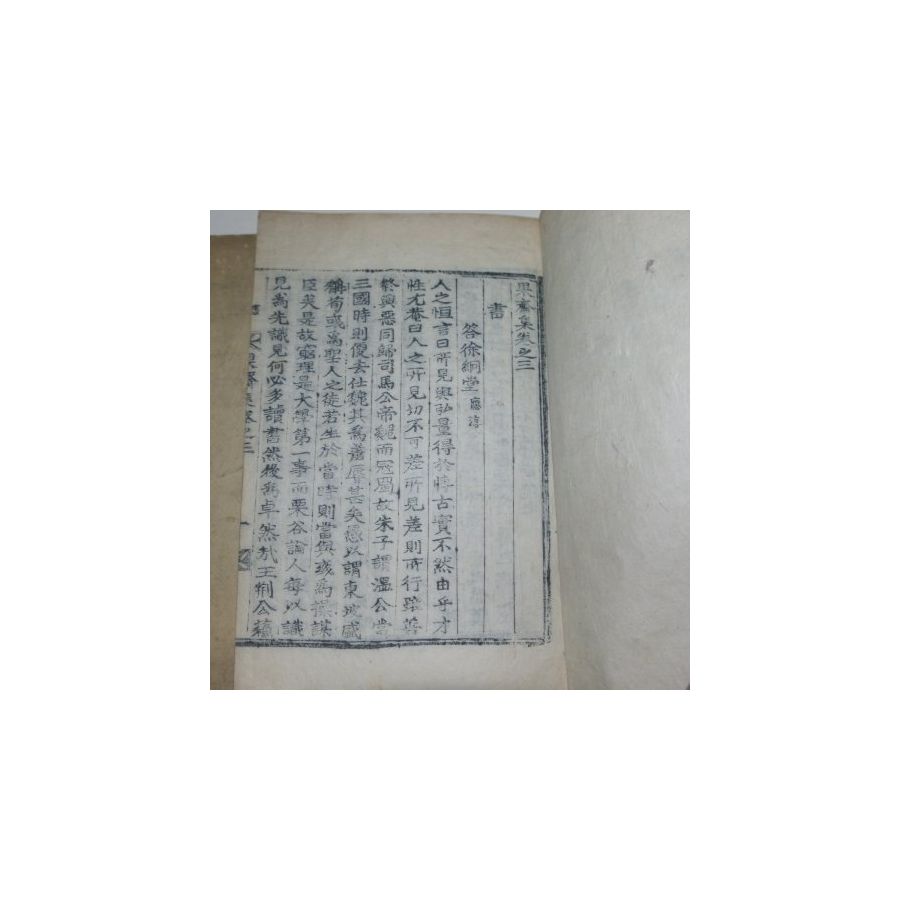 果齋集卷之三
書
答徐絅堂 應淳
人之恒言曰所見與弘量得於時古實不然由乎才
性尤菴曰人之所見切不可差所見差則所行雖善
終與惡同歸司馬公帝魏而冦蜀故朱子謂溫公當
三國時則便去仕魏其爲羞辱甚矣愚以謂東坡盛
稱荀彧爲聖人之徒若生於當時則當與彧爲操謀
臣矣是故窮理是大學第一事而栗谷論人每以識
見爲先識見何必多讀書然後爲卓然哉王荊公
果齋集卷之三
一